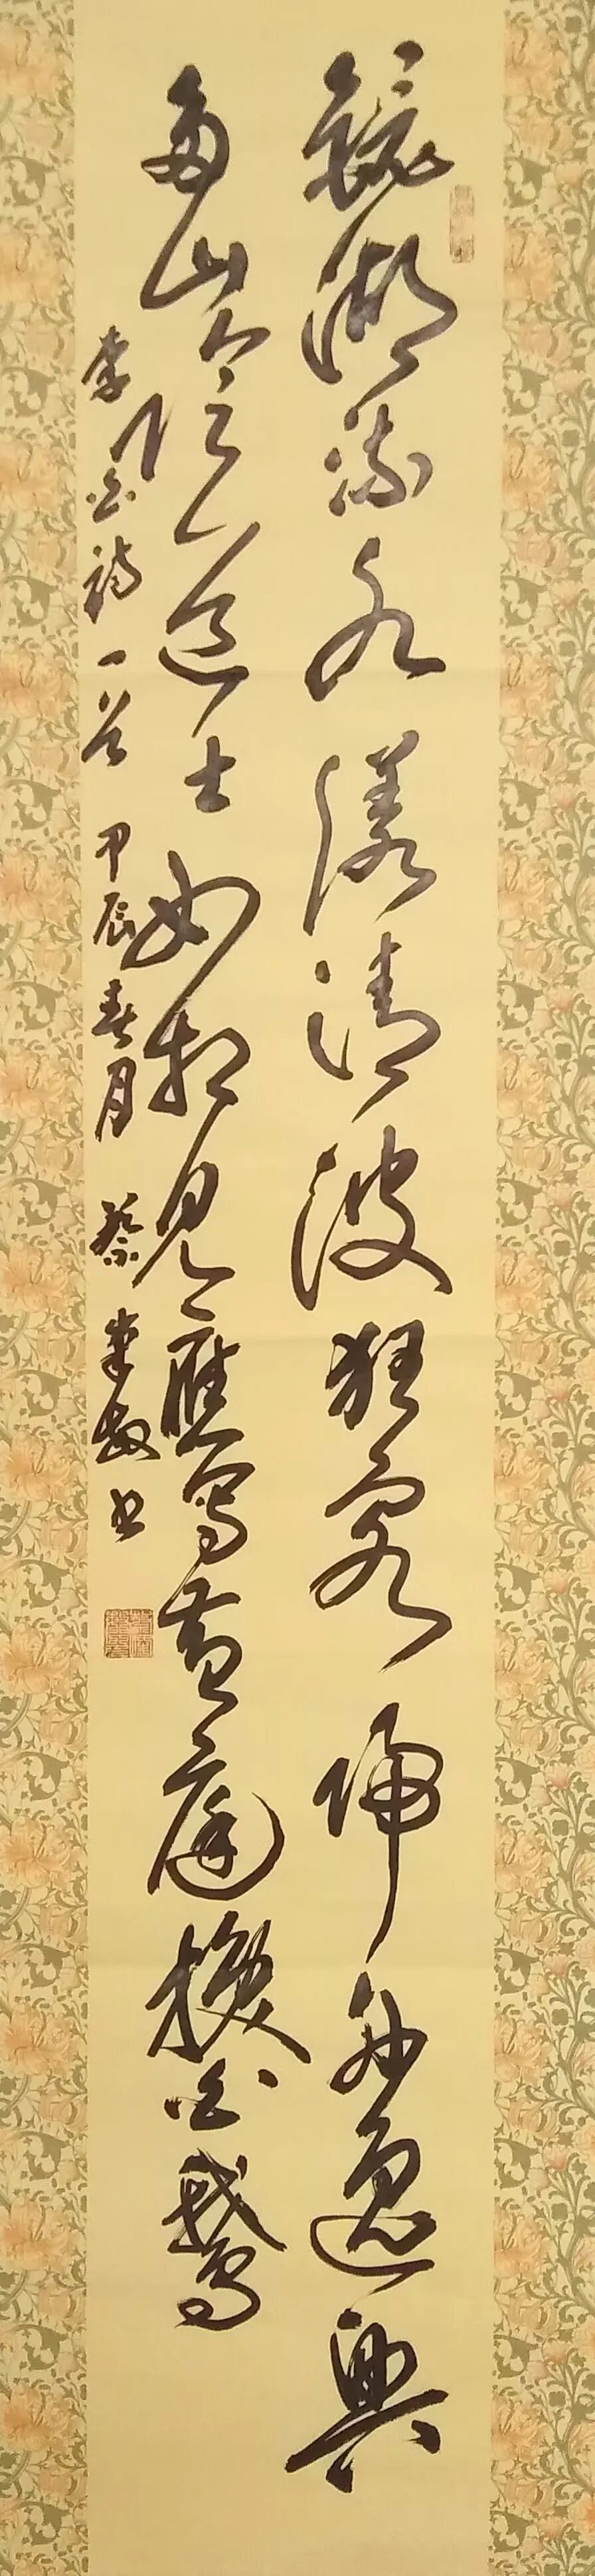 鏡湖流水漾清波狂客歸舟逸興
多山陰道士如相見應寫黃庭換白鵝
李白詩一首 甲辰春月 蔡 書